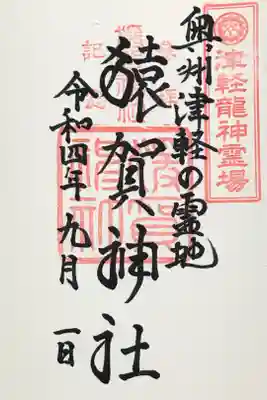 津軽龍神霊場
奥州津軽の霊地
猿賀神社
令和四年九月
一日